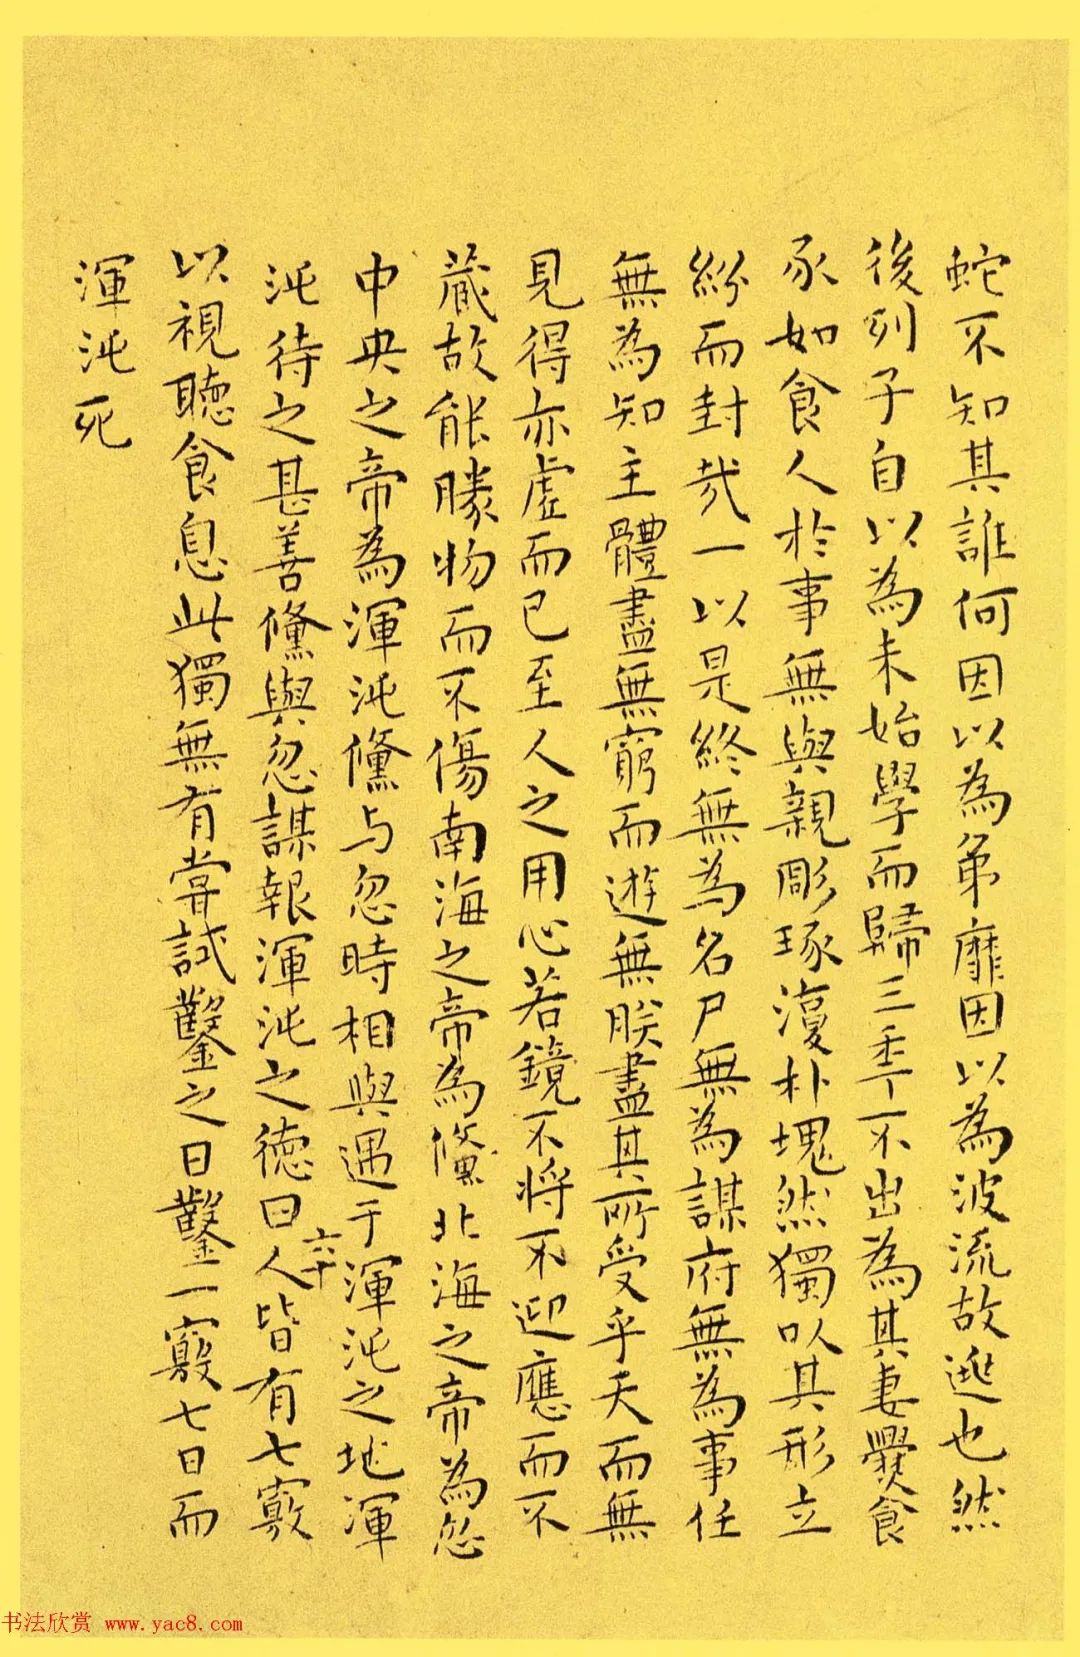 蛇不知其誰何因以為弟靡因以為波流故逃也然
後列子自以為未始學而歸三季不出為其妻爨食
豕如食人於事無與親彫琢復朴塊然獨以其形立
紛而封哉一以是終無為名尸無為謀府無為事任
無為知主體盡無窮而遊無朕盡其所受乎天而無
見得亦虛而已至人之用心若鏡不將不迎應而不
藏故能勝物而不傷南海之帝為儵北海之帝為忽
中央之帝為渾沌儵与忽時相與遇于渾沌之地渾
沌待之甚善儵與忽謀報渾沌之德曰人皆有七竅
六
以視聽食息此獨無有嘗試鑿之日鑿一竅七日而
渾沌死
书法欣赏 www.yac8.com